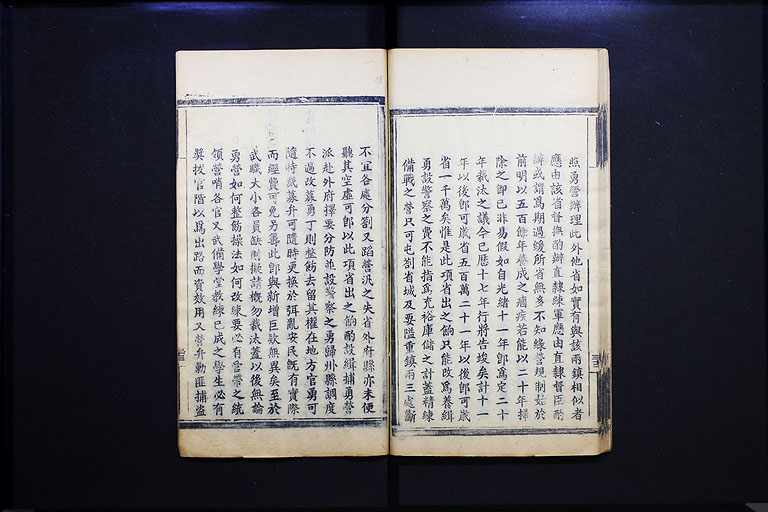 照勇營辦理此外他省如實有與該兩鎮相似者
應由該省督撫酌辦直隸練軍應由直隸督臣酌
辦或謂爲期過緩所省無多不知綠營規制始於
前明以五百餘年養成之痼疾若能以二十年掃
除之卽已非易假如自光緒十一年卽爲定二十
年裁汰之議今已歷十七年行將告竣矣計十一
年以後卽可歲省五百萬二十一年以後卽可歲
省一千萬矣惟是此項省出之餉只能改爲養緝
勇設警察之費不能指爲充裕庫儲之計蓋精練
備戰之營只可屯劄省城及要隘重鎮兩三處斷
不宜各處分劄又蹈營汛之失省外府縣亦未便
聽其空虛可卽以此項省出之餉酌設緝捕勇營
派赴外府擇要分防並設警察之勇歸州縣調度
不過改募勇丁則整飭去留其權在地方官勇可
隨時裁募弁可隨時更換於弭亂安民旣有實際
而經費可免另籌此卽與新增巨款無異矣至於
武職大小各員缺則擬請槪勿裁汰蓋以後無論
勇營如何整飭操法如何改練要必有營帶之統
領營哨各官又武備學堂教練已成之學生必有
奬拔官階以爲出路而資效用又營弁勦匪捕盜